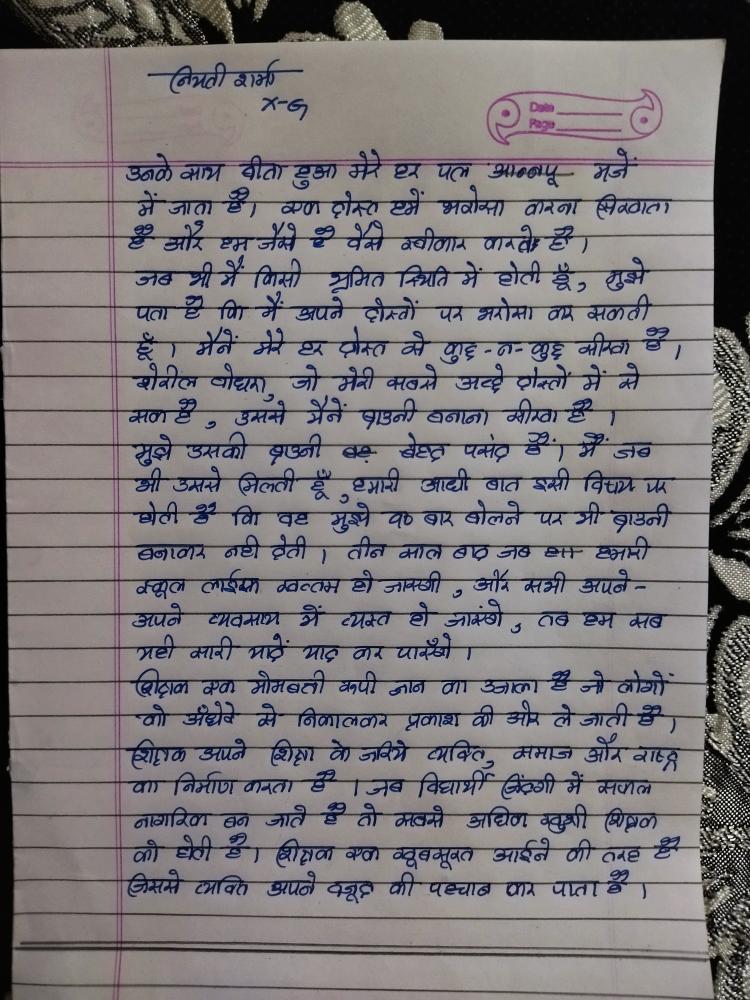 नियती शर्मा
X-G
Date
Page
उनके साथ बीता हुआ मेरे हर पल मजें
में जाता है। एक दोस्त हमें भरोसा करना सिखाता
है और हम जैसे है वैसे स्वीकार करते है।
जब भी मैं किसी भ्रमित स्थिति में होती हूँ, मुझे
पता है कि मैं अपने दोस्तों पर भरोसा कर सकती
हूँ। मैनें मेरे हर दोस्त से कुछ-न-कुछ सीखा है।
शेरील बोथरा, जो मेरी सबसे अच्छे दोस्तों में से
एक है, उससे मैनें ब्राउनी बनाना सीखा है।
मुझे उसकी ब्राउनी बेहद पसंद हैं। मैं जब
भी उससे मिलती हूँ, हमारी आधी बात इसी विषय पर
होती है कि वह मुझे १० बार बोलने पर भी ब्राउनी
बनाकर नही देती। तीन साल बाद जब हमारी
स्कूल लाईफ खत्तम हो जाएगी, और सभी अपने-
अपने व्यवसाय में व्यस्त हो जाएंगे, तब हम सब
यही सारी यादें याद कर पाएँगे।
शिक्षक एक मोमबती रूपी ज्ञान का उजाला है जो लोगों
को अँधेरे से निकालकर प्रकाश की ओर ले जाती है।
शिक्षक अपने शिक्षा के जरिये व्यक्ति, समाज और राष्ट्र
का निर्माण करता है। जब विद्यार्थी जिंदगी में सफल
नागरिक बन जाते है तो सबसे अधिक खुशी शिक्षक
को होती है। शिक्षक एक खूबसूरत आईने की तरह है
जिससे व्यक्ति अपने वजूद की पहचान कर पाता है।